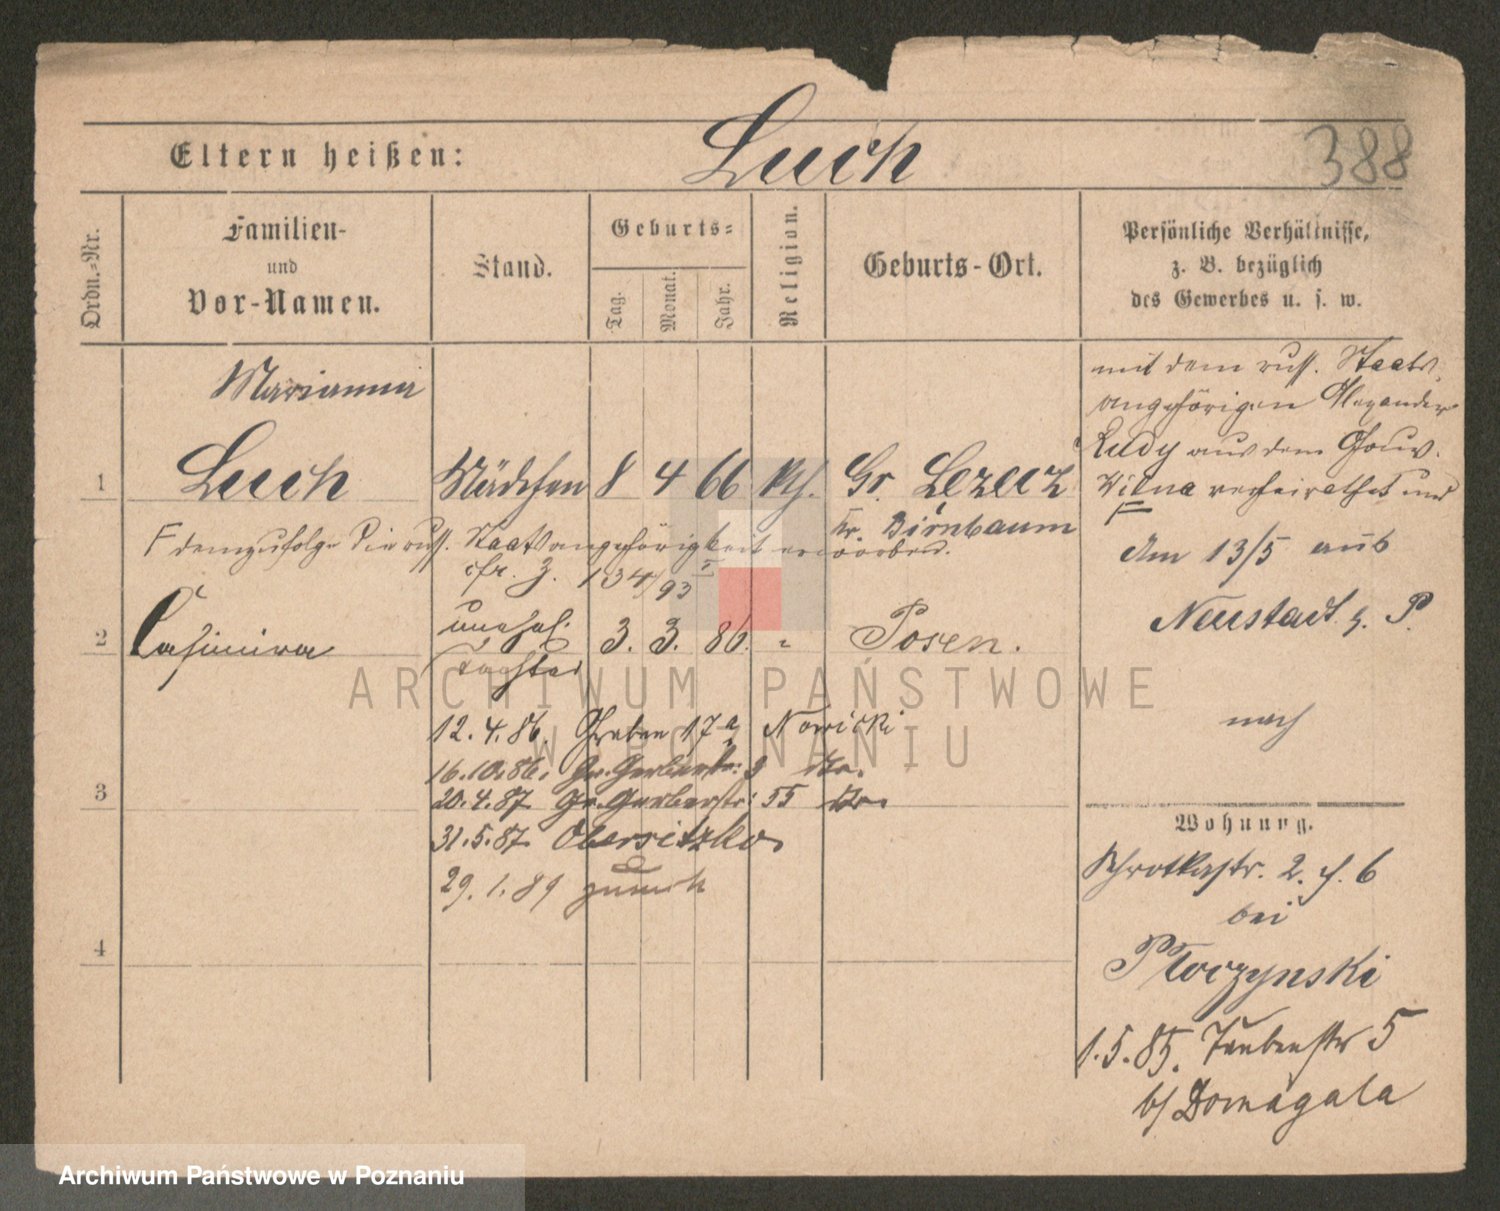 388
Eltern heißen: Luch
Ordn.=Nr.
Familien-
und
Vor-Namen.
Stand.
Geburts=
Tag.
Monat.
Jahr.
Religion.
Geburts-Ort.
Persönliche Verhältnisse,
z. B. bezüglich
des Gewerbes u. s. w.
Marianna
1 Luch Mädchen 8 4 66 kth. Gr. Lezecz
Kr. Birnbaum
F demzufolge die russ. Staatsangehörigkeit erworben.
cfr. J. 134/93
2 Casimira unehel. 3. 3. 86. " Posen.
Tochter
12.4.86. Graben 17a Nowicki
16.10.86. Gr. Gerberstr: 9 do.
3
20.4.87 Gr. Gerberstr: 55 do.
31.5.87. Obersitzko
29.1.89 zurück
4
mit dem russ. Staats-
angehörigen Alexander
Rudy aus dem Gouv.
Wilna verheirathet und
F
Am 13/5 aus
Neustadt b. P.
nach
Wohnung.
Schrotkastr. 2. f. 6
bei
Ploczynski
1.5.85. Taubenstr 5
b/ Domagala
ARCHIWUM PAŃSTWOWE
W POZNANIU
Archiwum Państwowe w Poznaniu